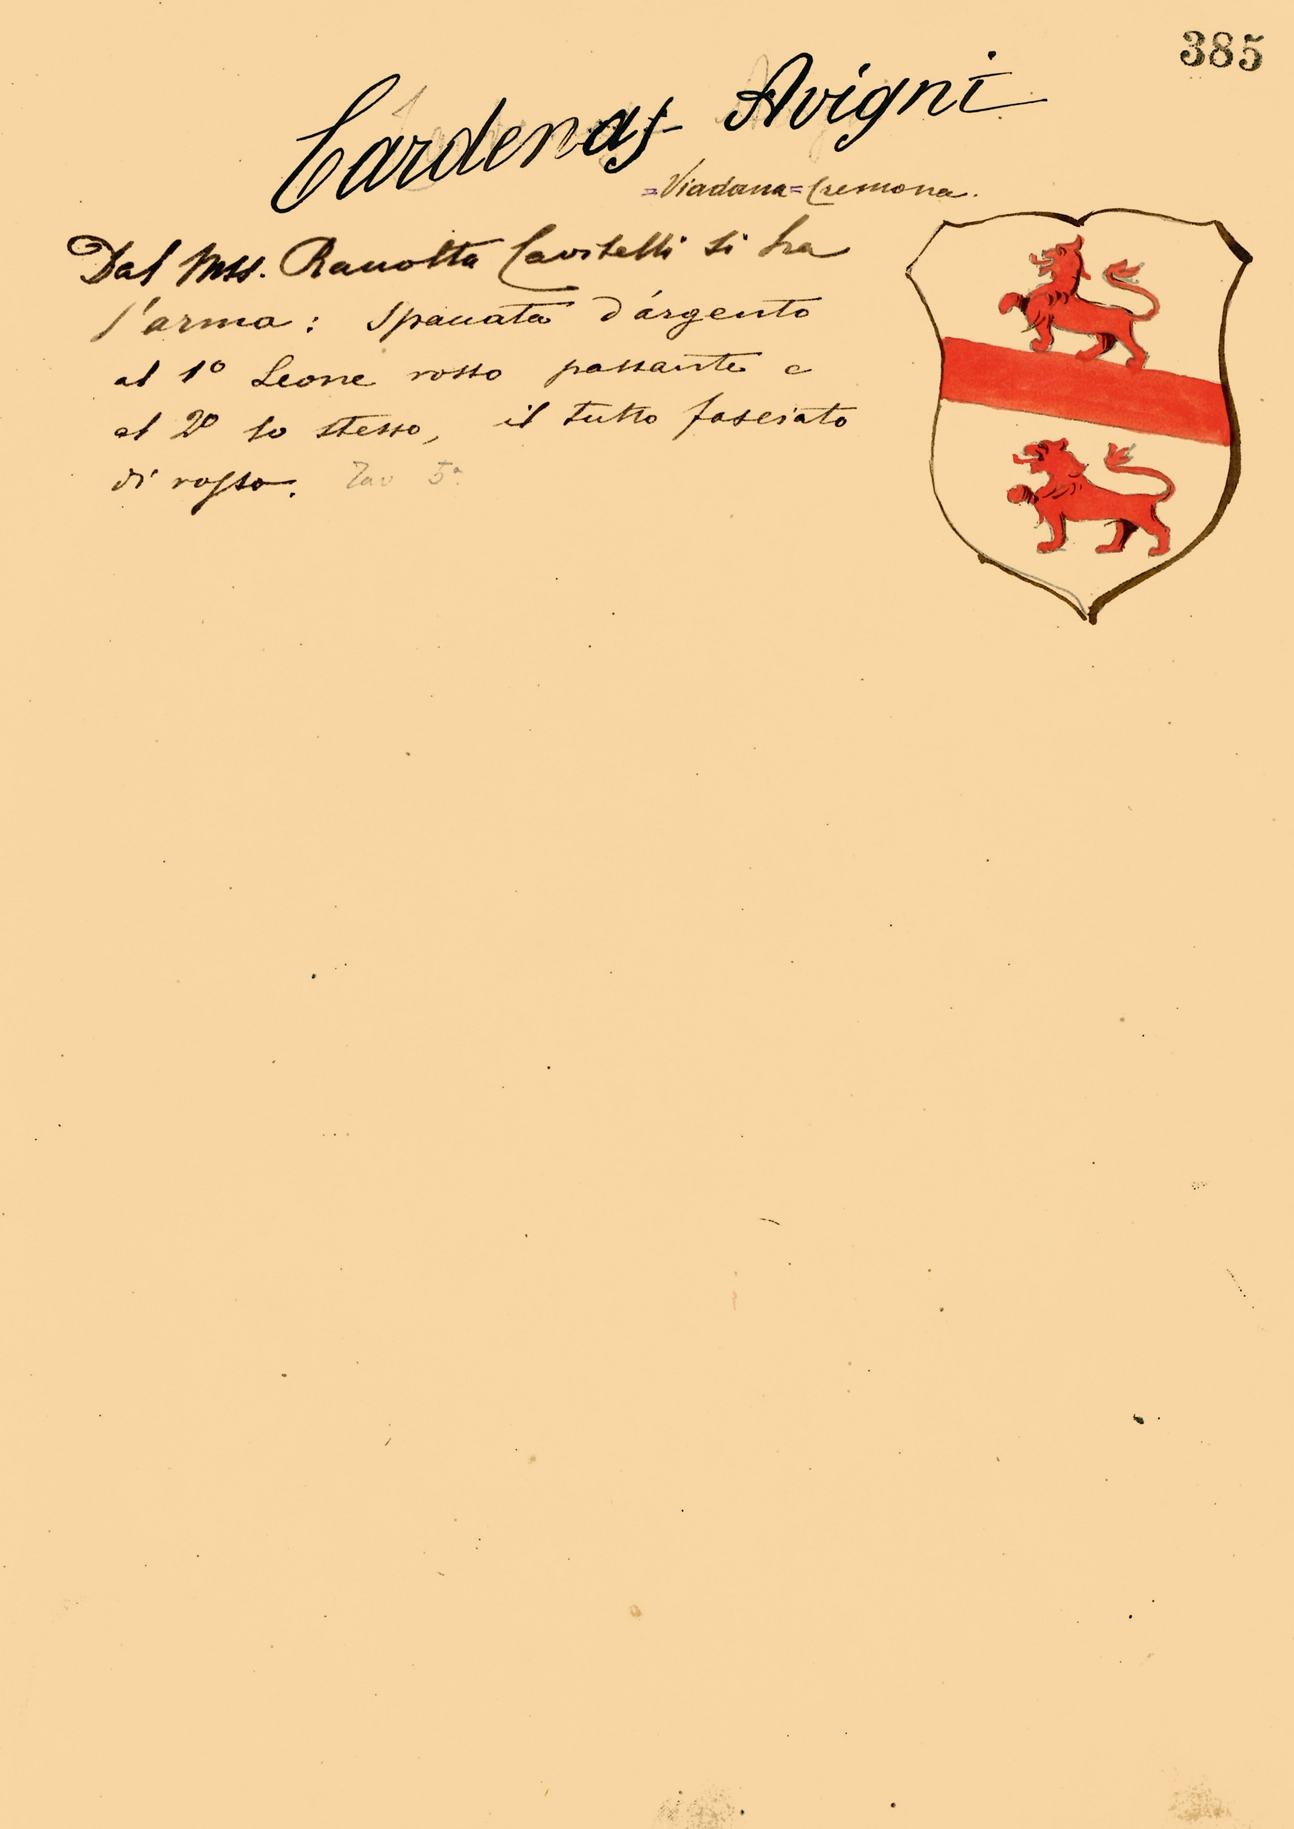 385
Cardenas Avigni
=Viadana=Cremona.
Dal Mss. Racolta Cavitelli si ha
l'arma: Spacata d'argento
al 1º Leone rosso passante e
al 2º lo stesso, il tutto fasciato
di rosso. Tav 5ª